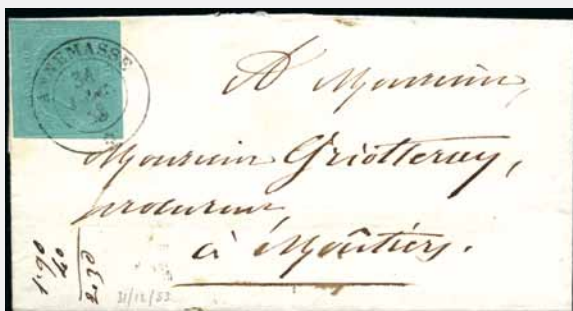 ANNEMASSE
A Monsieur,
Monsieur Griotteray,
procureur
à Moûtiers.
1.90
40
2.30
31/12/53